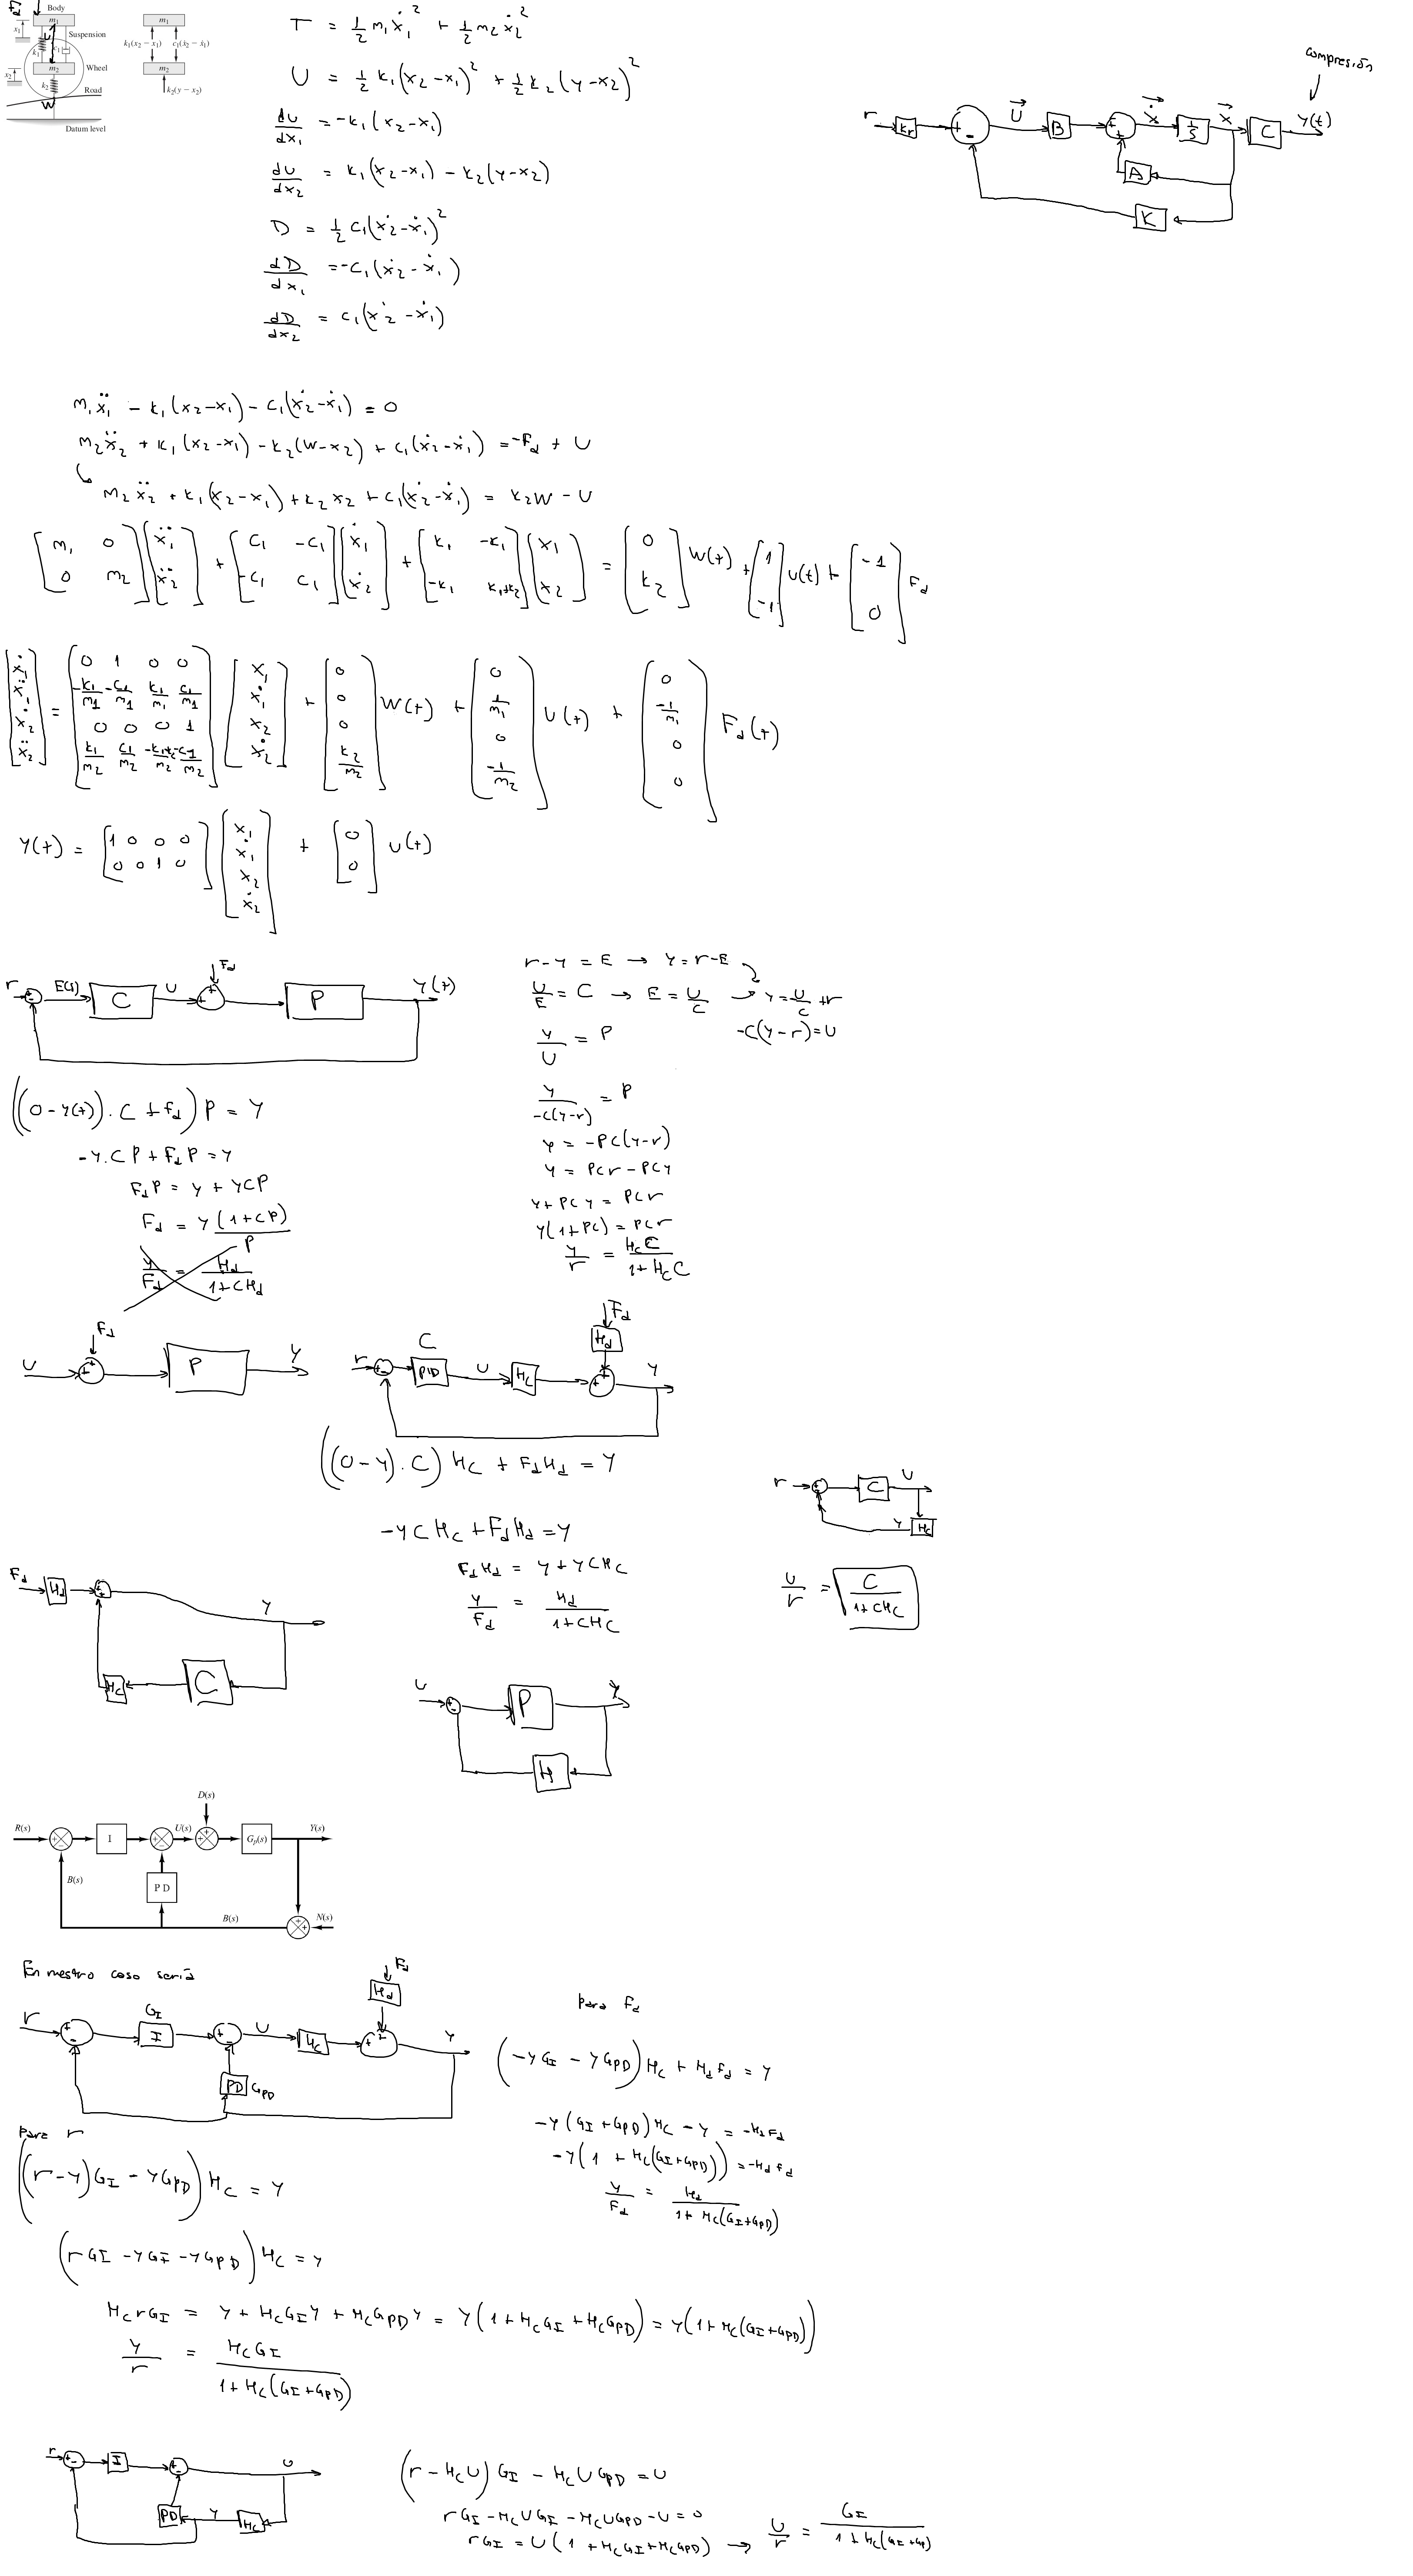 F_d
Body
m₁
x₁
Suspension
U
k₁
c₁
m₂
Wheel
x₂
k₂
Road
W
Datum level
m₁
k₁(x₂ − x₁) c₁(ẋ₂ − ẋ₁)
m₂
k₂(y − x₂)
T = 1/2 m₁ẋ₁² + 1/2 m₂ẋ₂²
U = 1/2 k₁(x₂-x₁)² + 1/2 k₂(y-x₂)²
du/dx₁ = -k₁(x₂-x₁)
du/dx₂ = k₁(x₂-x₁) - k₂(y-x₂)
D = 1/2 c₁(ẋ₂-ẋ₁)²
dD/dx₁ = -c₁(ẋ₂-ẋ₁)
dD/dẋ₂ = c₁(ẋ₂-ẋ₁)
compresión
r kr + - U B + + Ẋ 1/s X C Y(t)
A
K
m₁ẍ₁ - k₁(x₂-x₁) - c₁(ẋ₂-ẋ₁) = 0
m₂ẍ₂ + k₁(x₂-x₁) - k₂(W-x₂) + c₁(ẋ₂-ẋ₁) = -F_d + U
m₂ẍ₂ + k₁(x₂-x₁) + k₂x₂ + c₁(ẋ₂-ẋ₁) = k₂W - U
[m₁ 0; 0 m₂][ẍ₁; ẍ₂] + [c₁ -c₁; -c₁ c₁][ẋ₁; ẋ₂] + [k₁ -k₁; -k₁ k₁+k₂][x₁; x₂] = [0; k₂] W(t) + [1; -1] U(t) + [-1; 0] F_d
[ẋ₁; ẍ₁; ẋ₂; ẍ₂] = [0 1 0 0; -k₁/m₁ -c₁/m₁ k₁/m₁ c₁/m₁; 0 0 0 1; k₁/m₂ c₁/m₂ -k₁+k₂/m₂ -c₁/m₂] [x₁; ẋ₁; x₂; ẋ₂] + [0; 0; 0; k₂/m₂] W(t) + [0; 1/m₁; 0; -1/m₂] U(t) + [0; -1/m₁; 0; 0] F_d(t)
Y(t) = [1 0 0 0; 0 0 1 0] [x₁; ẋ₁; x₂; ẋ₂] + [0; 0] U(t)
F_d
r - E(s) C U + + P Y(t)
r-y = E → Y = r-E
U/E = C → E = U/C → Y = U/C + r
-C(Y-r) = U
Y/U = P
((0-Y(t)).C + F_d) P = Y
-Y.CP + F_dP = Y
F_dP = Y + YCP
F_d = Y(1+CP)/P
Y/F_d = H_d/1+CH_d
Y/-C(Y-r) = P
Y = -PC(Y-r)
Y = PCr - PCY
Y + PCY = PCr
Y(1+PC) = PCr
Y/r = H_cC/1+H_cC
F_d
U + + P Y
F_d
H_d
C
r + - PID U H_c + + Y
((0-Y).C) H_c + F_dH_d = Y
-YCH_c + F_dH_d = Y
F_dH_d = Y + YCH_c
Y/F_d = H_d/1+CH_c
r + - C U
Y H_c
U/r = C/1+CH_c
F_d H_d + + Y
H_c C
U + - P Y
H
D(s)
R(s) + − I + − U(s) + + G_p(s) Y(s)
P D
B(s)
B(s) + + N(s)
En nuestro caso sería
F_d
H_d
G_I
r + - I + - U H_c + + Y
PD G_PD
para F_d
(-YG_I - YG_PD) H_c + H_dF_d = Y
-Y(G_I+G_PD)H_c - Y = -H_dF_d
-Y(1 + H_c(G_I+G_PD)) = -H_dF_d
Y/F_d = H_d/1+H_c(G_I+G_PD)
para r
((r-Y)G_I - YG_PD) H_c = Y
(rG_I - YG_I - YG_PD) H_c = Y
H_c r G_I = Y + H_cG_IY + H_cG_PDY = Y(1+H_cG_I+H_cG_PD) = Y(1+H_c(G_I+G_PD))
Y/r = H_cG_I/1+H_c(G_I+G_PD)
r + - I + - U
PD Y H_c
(r - H_cU) G_I - H_cUG_PD = U
rG_I - H_cUG_I - H_cUG_PD - U = 0
rG_I = U(1 + H_cG_I + H_cG_PD) → U/r = G_I/1+H_c(G_I+G_P)